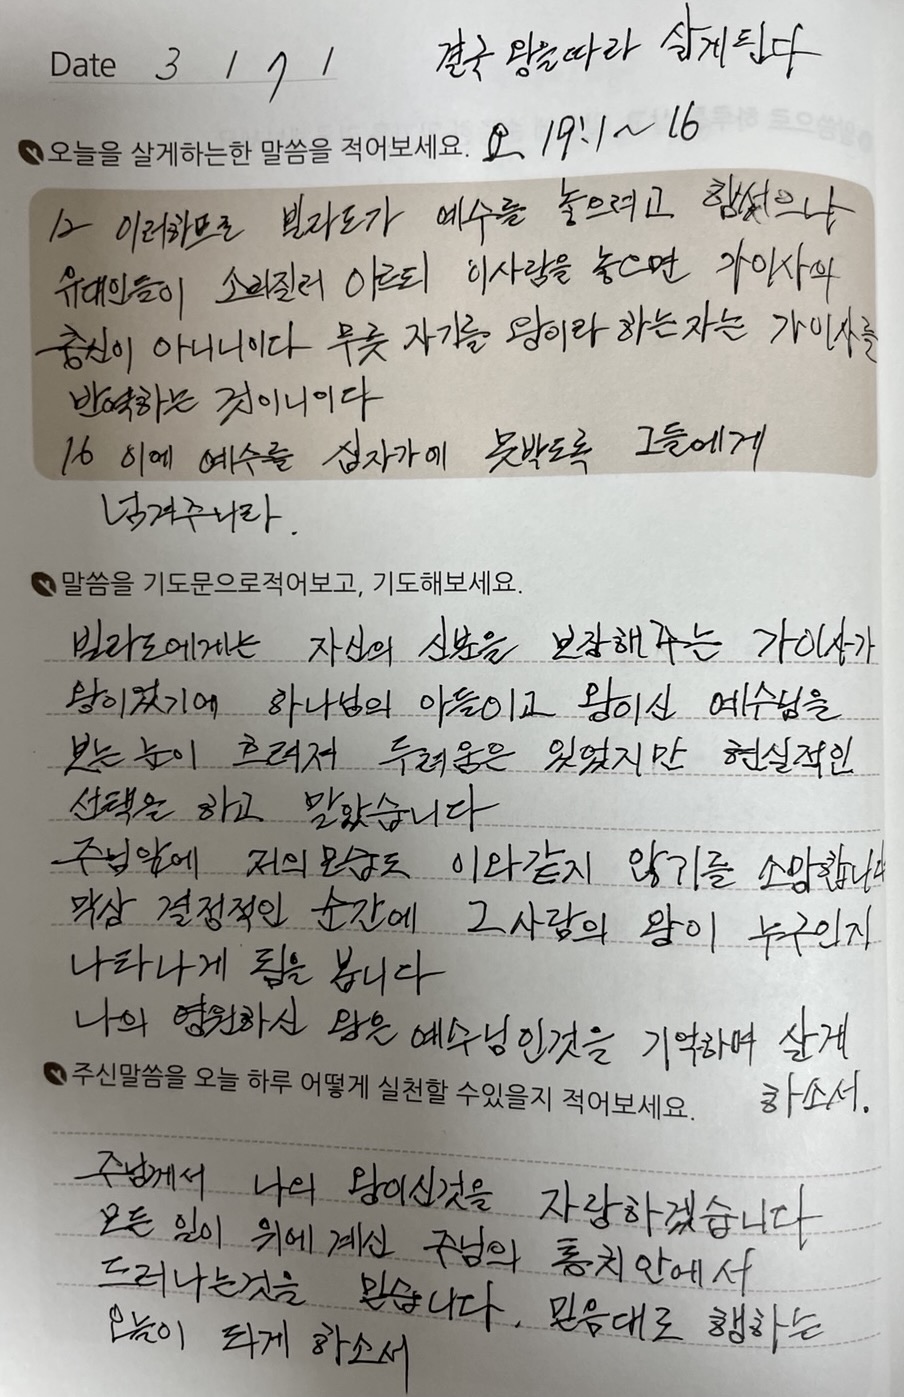 Date 3 / 7 / 결국 왕을따라 살게된다
오늘을 살게하는한 말씀을 적어보세요. 요 19:1~16
12 이러하므로 빌라도가 예수를 놓으려고 힘썼으나
유대인들이 소리질러 이르되 이사람을 놓으면 가이사의
충신이 아니니이다 무릇 자기를 왕이라 하는자는 가이사를
반역하는 것이니이다
16 이에 예수를 십자가에 못박도록 그들에게
넘겨주니라.
말씀을 기도문으로적어보고, 기도해보세요.
빌라도에게는 자신의 신분을 보장해주는 가이사가
왕이었기에 하나님의 아들이고 왕이신 예수님을
보는 눈이 흐려져 두려움은 있었지만 현실적인
선택을 하고 말았습니다
주님앞에 저의모습도 이와같지 않기를 소망합니다
막상 결정적인 순간에 그사람의 왕이 누구인지
나타나게 됨을 봅니다
나의 영원하신 왕은 예수님인것을 기억하며 살게
하소서.
주신말씀을 오늘 하루 어떻게 실천할 수있을지 적어보세요.
주님께서 나의 왕이신것을 자랑하겠습니다
모든 일이 위에계신 주님의 통치안에서
드러나는것을 믿습니다. 믿음대로 행하는
오늘이 되게 하소서